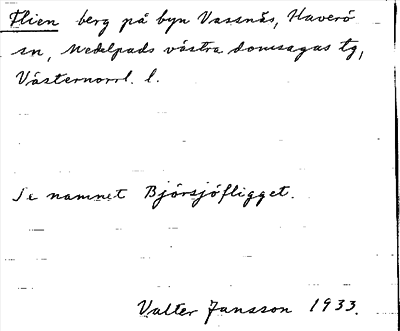 Flien berg på byn Vassnäs, Haverö
sn, Medelpads västra domsagas tg,
Västernorrl. l.
Se namnet Björsjöfligget.
Valter Jansson 1933.